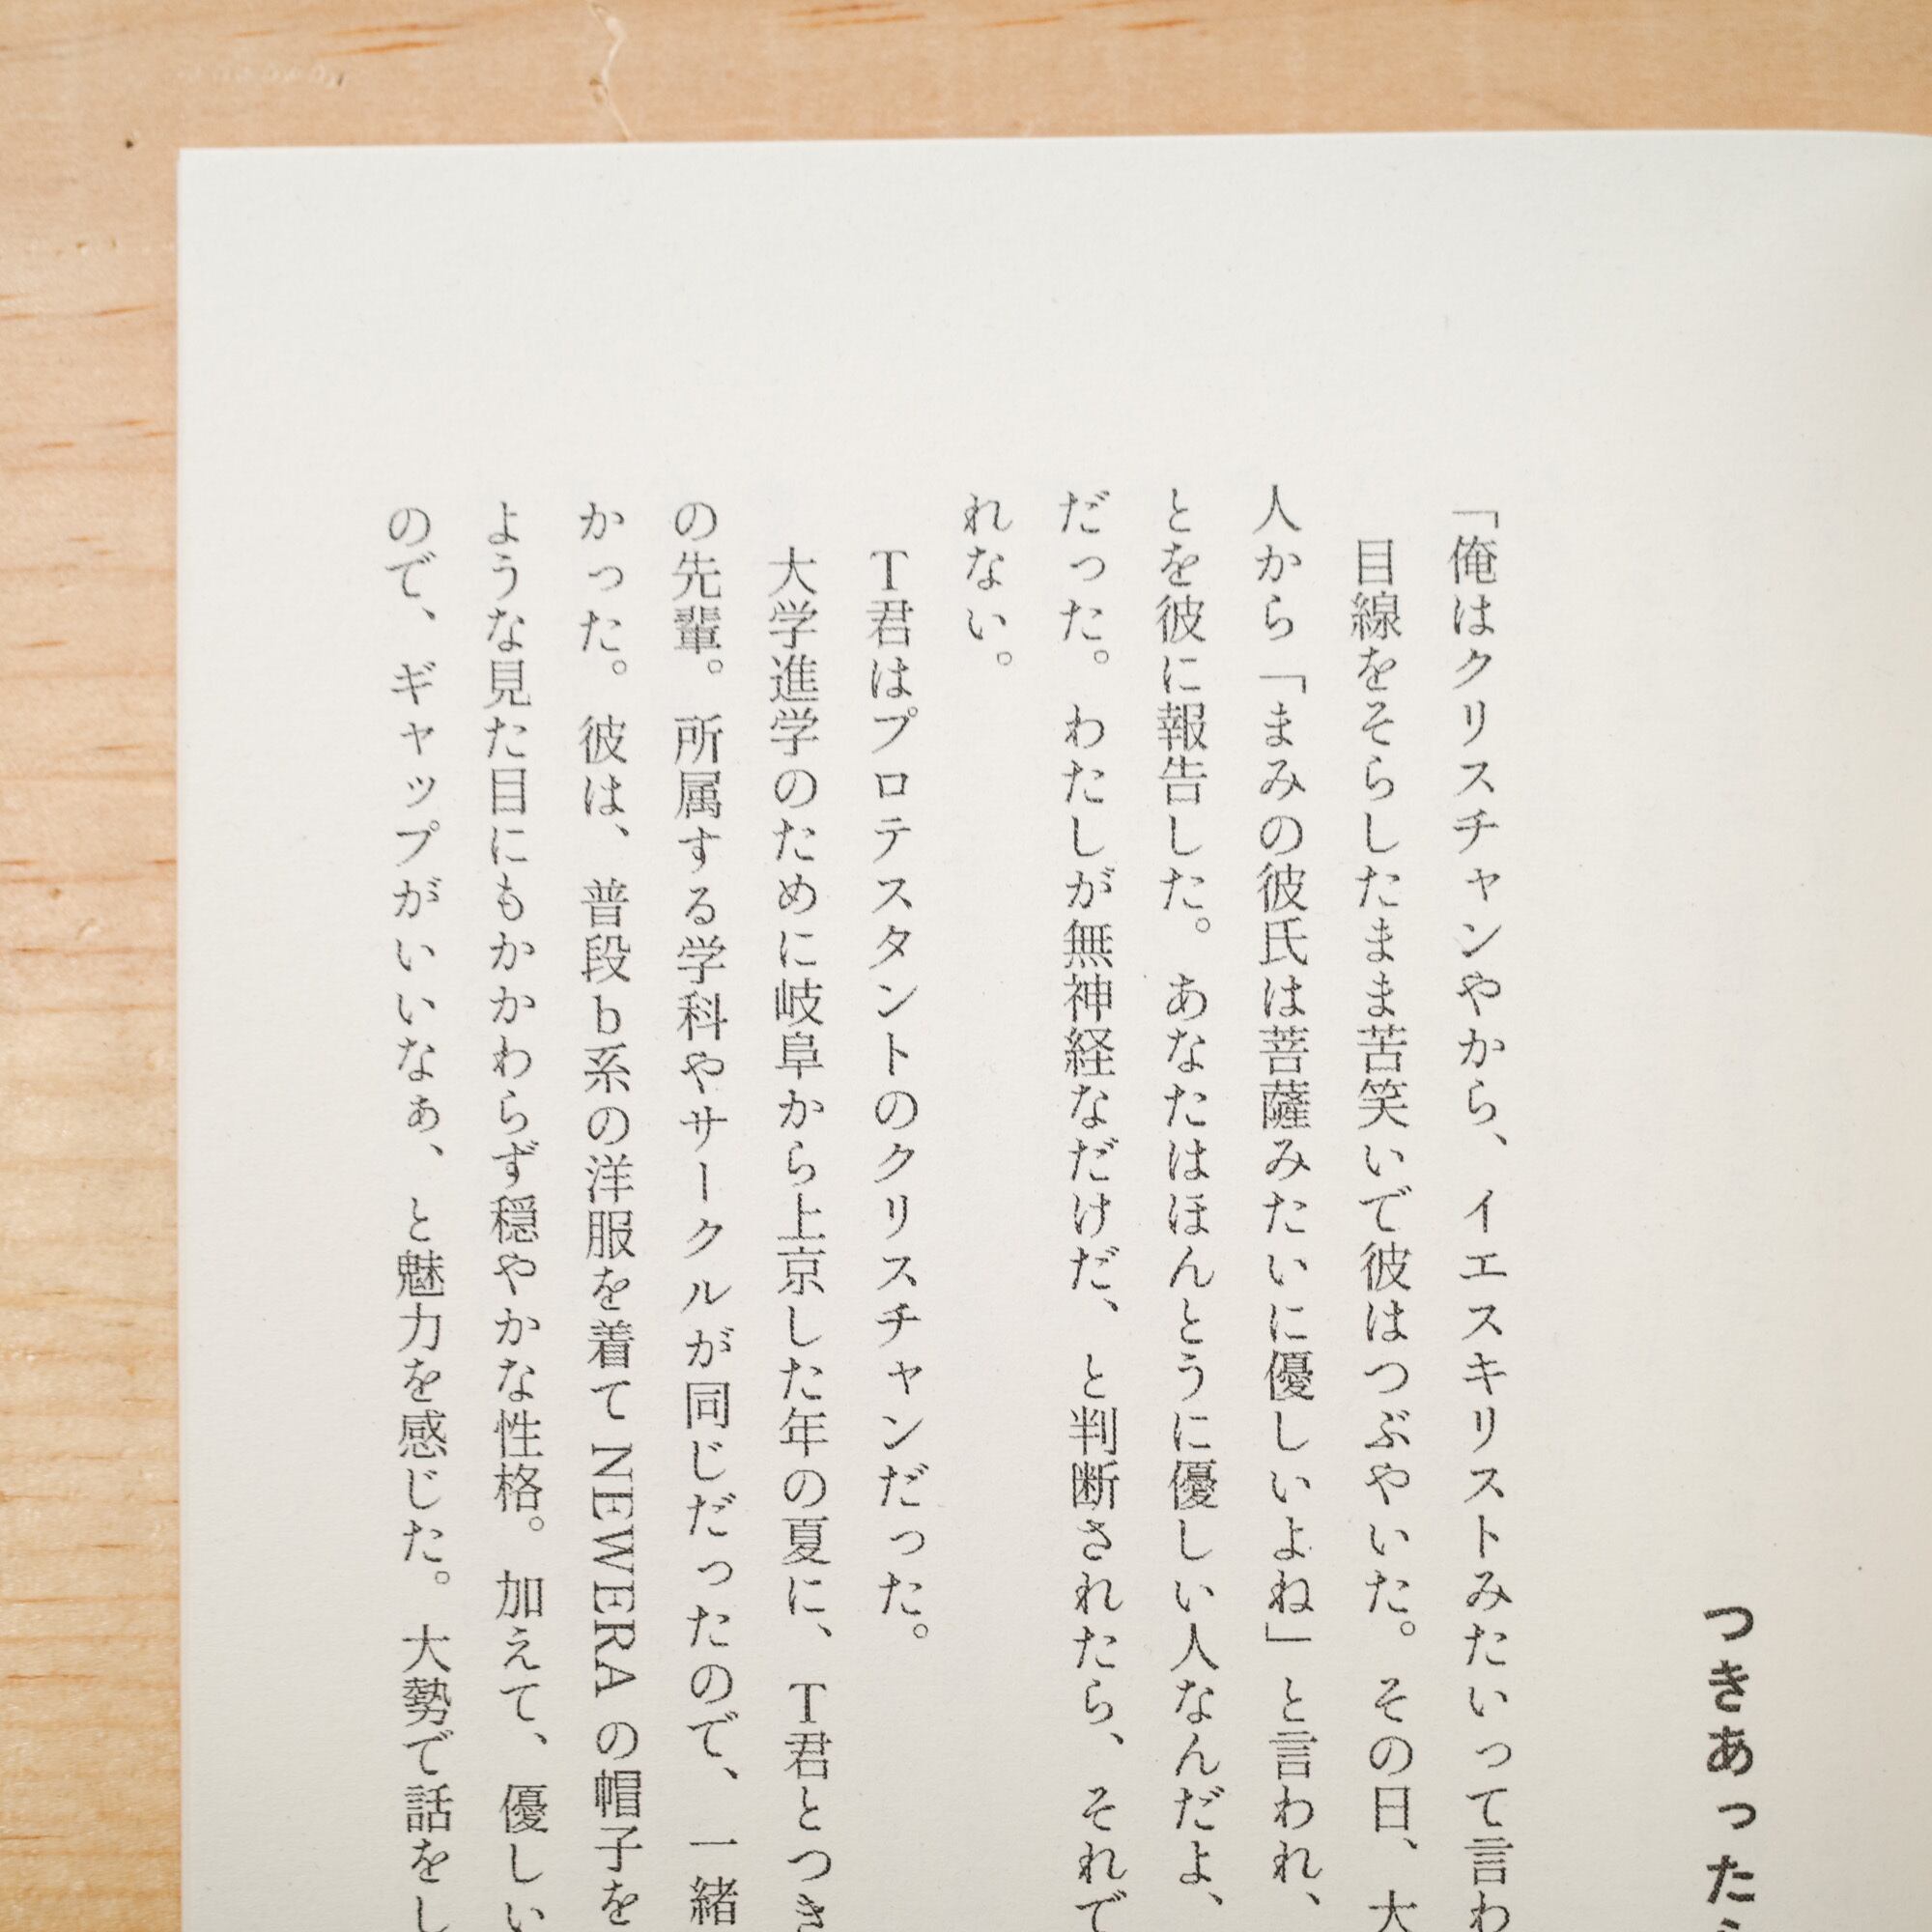 つきあったら
「俺はクリスチャンやから、イエスキリストみたいって言わ
目線をそらしたまま苦笑いで彼はつぶやいた。その日、大
人から「まみの彼氏は菩薩みたいに優しいよね」と言われ、
とを彼に報告した。あなたはほんとうに優しい人なんだよ、
だった。わたしが無神経なだけだ、と判断されたら、それで
れない。
T君はプロテスタントのクリスチャンだった。
大学進学のために岐阜から上京した年の夏に、T君とつき
の先輩。所属する学科やサークルが同じだったので、一緒
かった。彼は、普段b系の洋服を着てNEWERAの帽子を
ような見た目にもかかわらず穏やかな性格。加えて、優しい
ので、ギャップがいいなぁ、と魅力を感じた。大勢で話をし